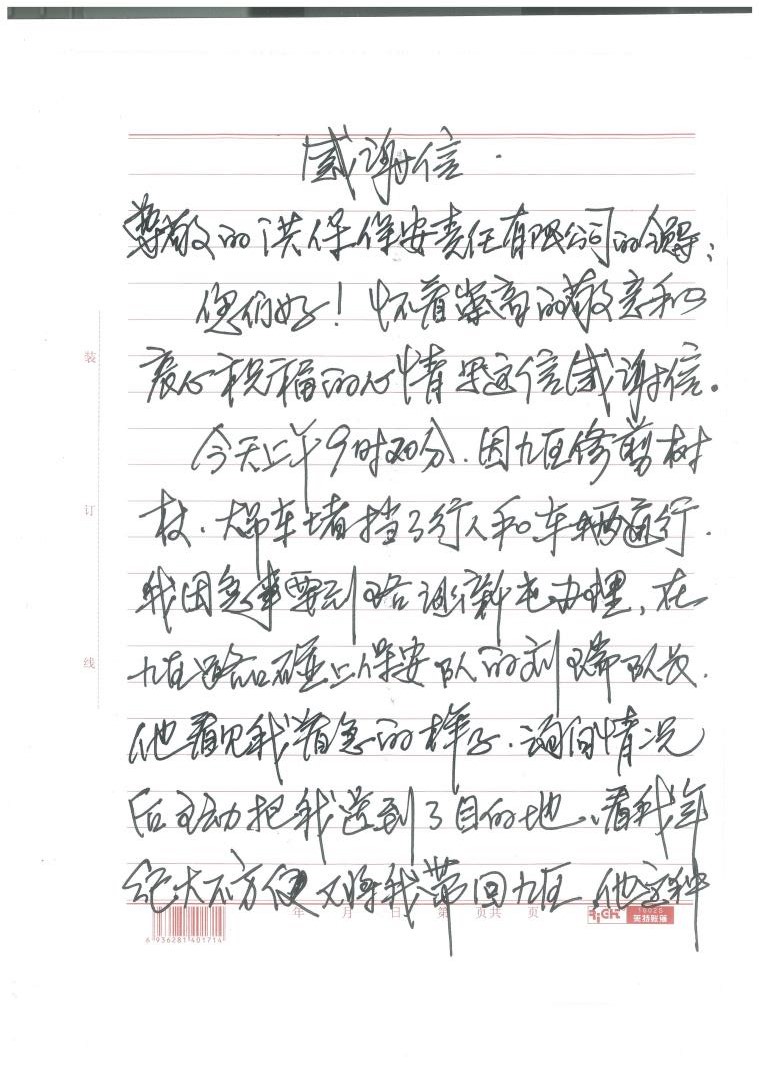 感谢信.
尊敬的洪保保安责任有限公司的领导:
您们好!怀着崇高的敬意和
衷心祝福的心情写这信感谢信。
今天上午9时20分.因九区修剪树
枝.大吊车堵挡了行人和车辆通行.
我因急事要到 办理,在
九区路口碰上保安队的刘瑞队长.
他看见我着急的样子.询问情况
后主动把我送到了目的地、看我年
纪大不方便又将我带回九区.他这种
装
订
线
年 月 日 第 页共 页
6 936281 401714